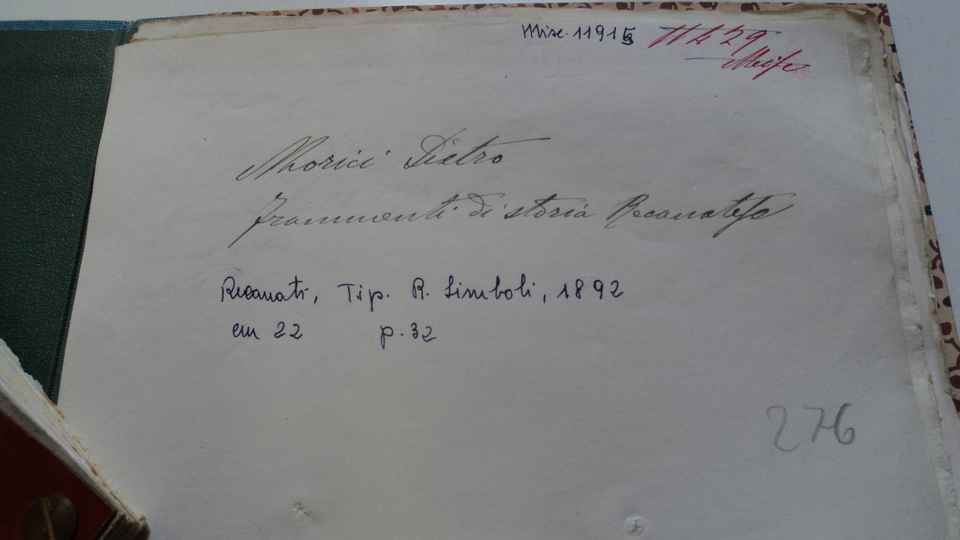 Misc. 1191
Morici Pietro
Frammenti di storia Recanatese
Recanati, Tip. R. Simboli, 1892
cm 22 p. 32
276